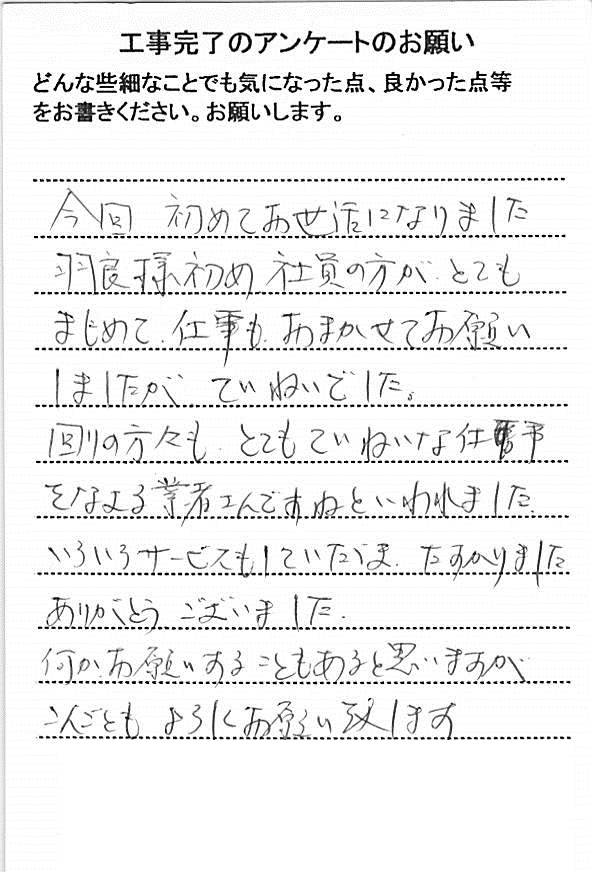 工事完了のアンケートのお願い
どんな些細なことでも気になった点、良かった点等
をお書きください。お願いします。
今回 初めてお世話になりました
羽良様初め 社員の方が、とても
まじめで、仕事も、おまかせでお願い
しましたが ていねいでした。
回りの方々も、とてもていねいな仕事
をなよる業者さんですねといわれました。
いろいろサービスもしていただき、たすかりました
ありがとう ございました。
何か、お願いすることもあると思いますが
こんごとも よろしくお願い致します